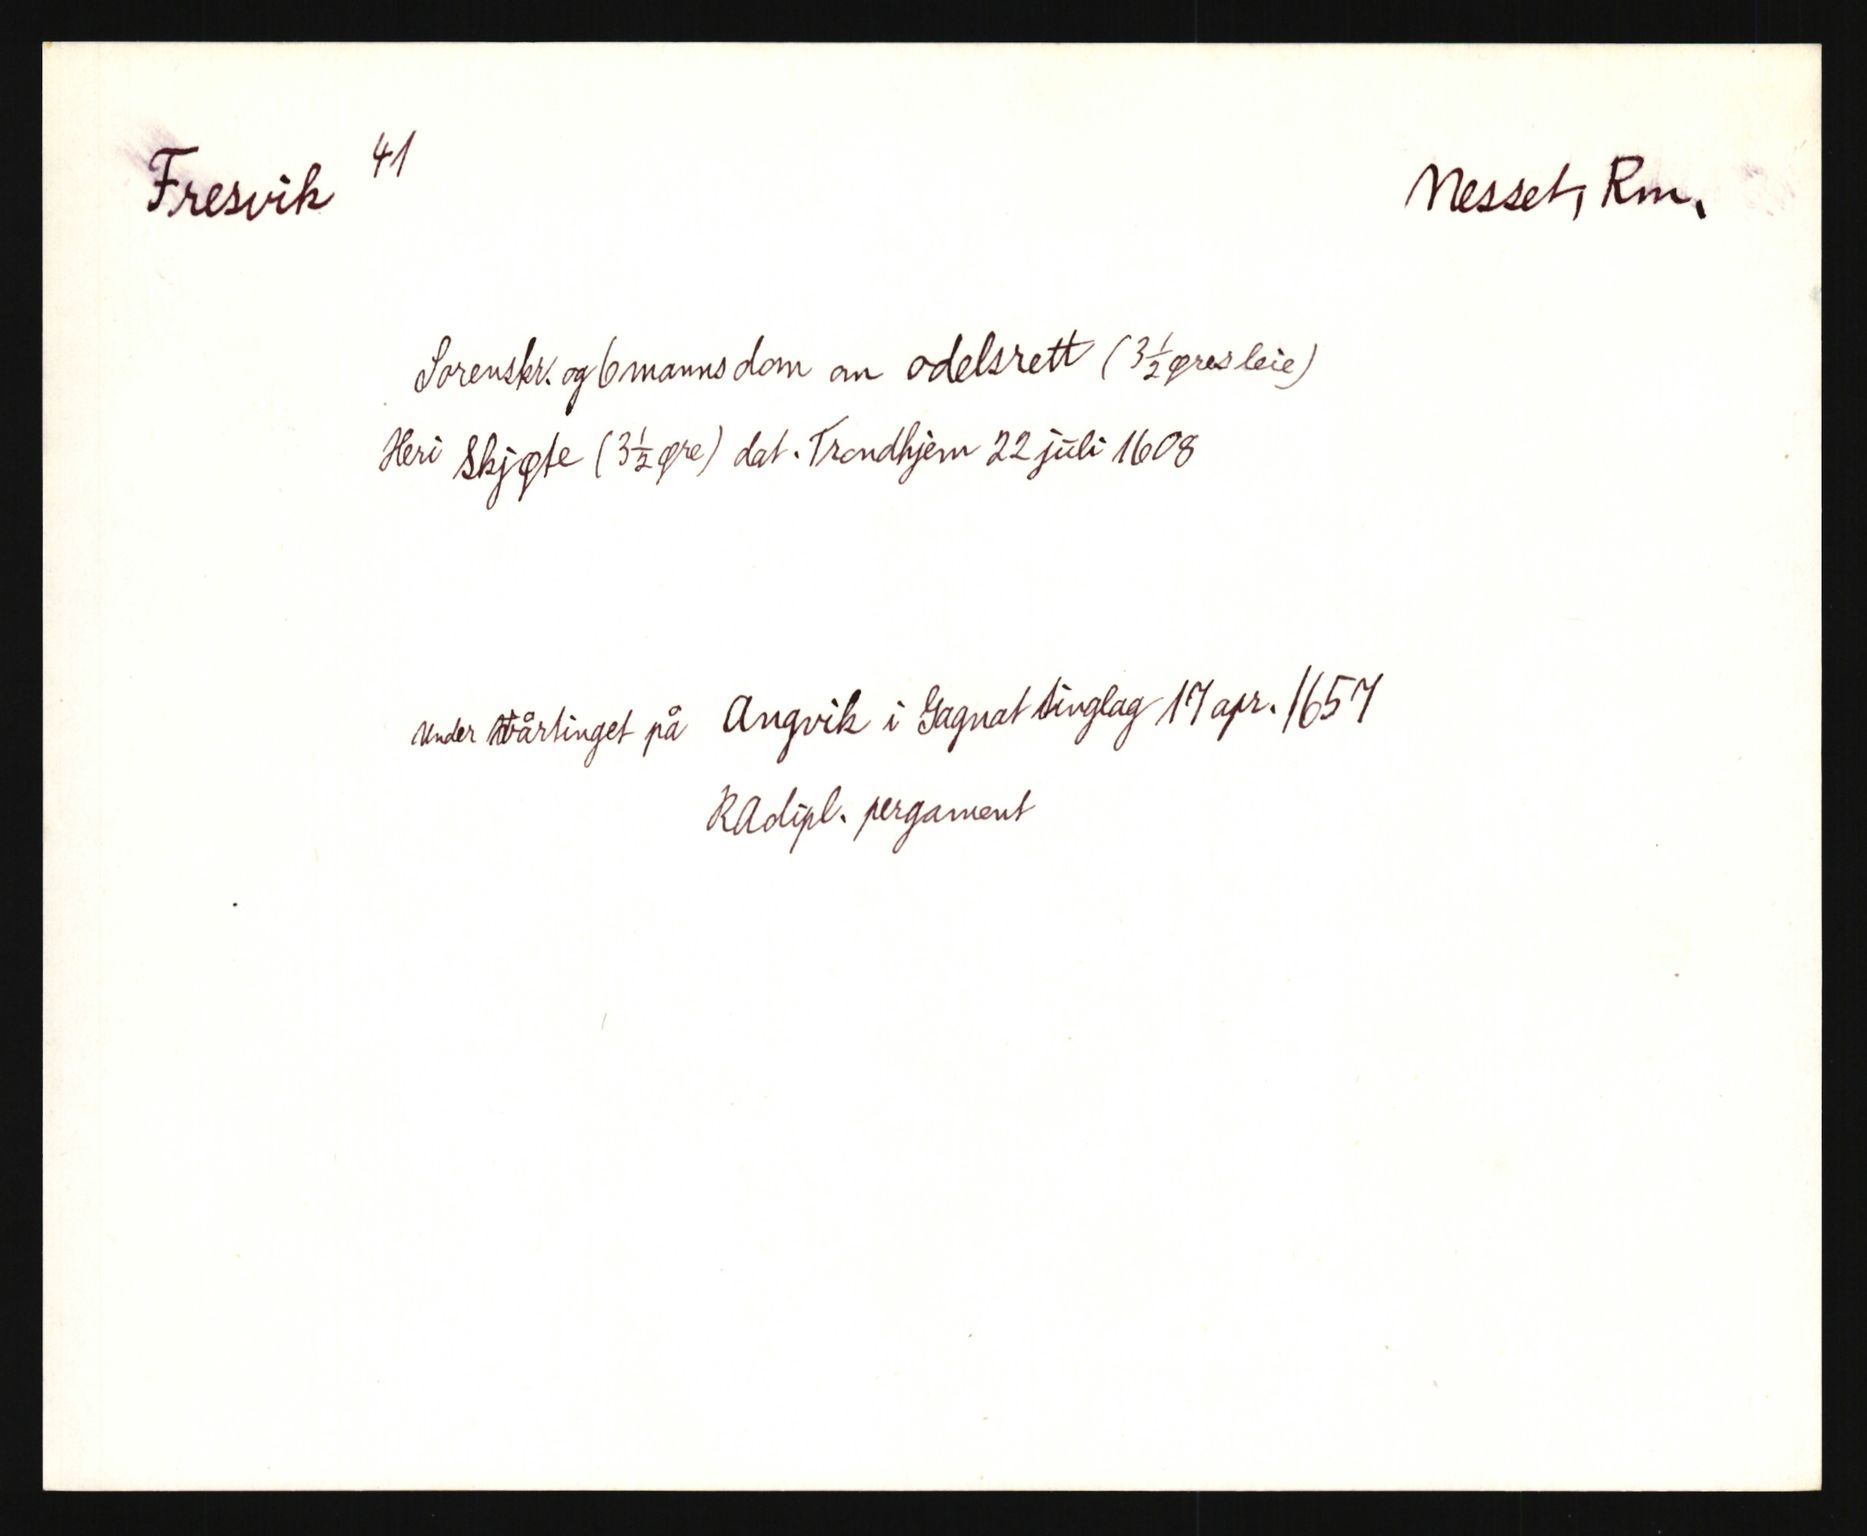 Fresvik 41
Nesset, Rm.
Sorenskr. og 6 manns dom om odelsrett (3½ øres leie)
Heri Skjøte (3½ øre) dat. Trondhjem 22 juli 1608
under vårtinget på Angvik i Gagnat tinglag 17 apr. 1657
RAdipl. pergament